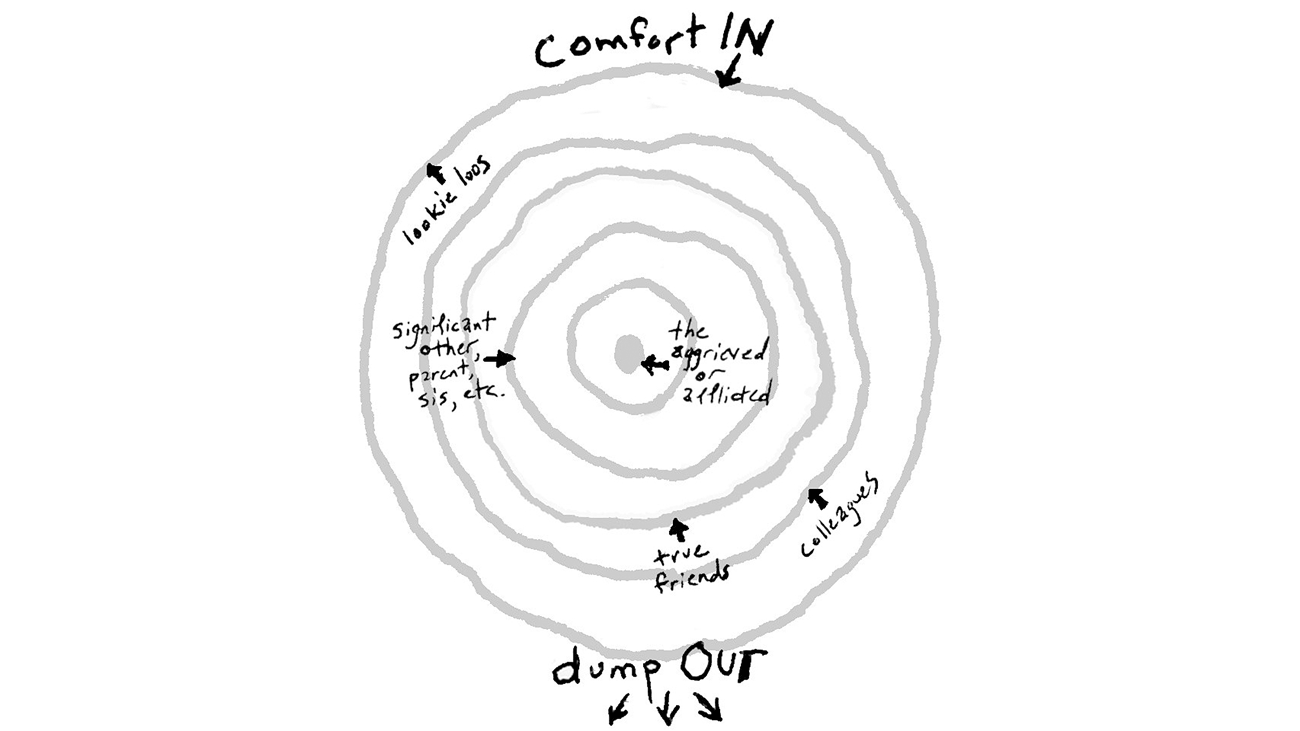 comfort IN
lookie loos
significant
other,
parent,
sis, etc.
the
aggrieved
or
afflicted
colleagues
true
friends
dump OUT